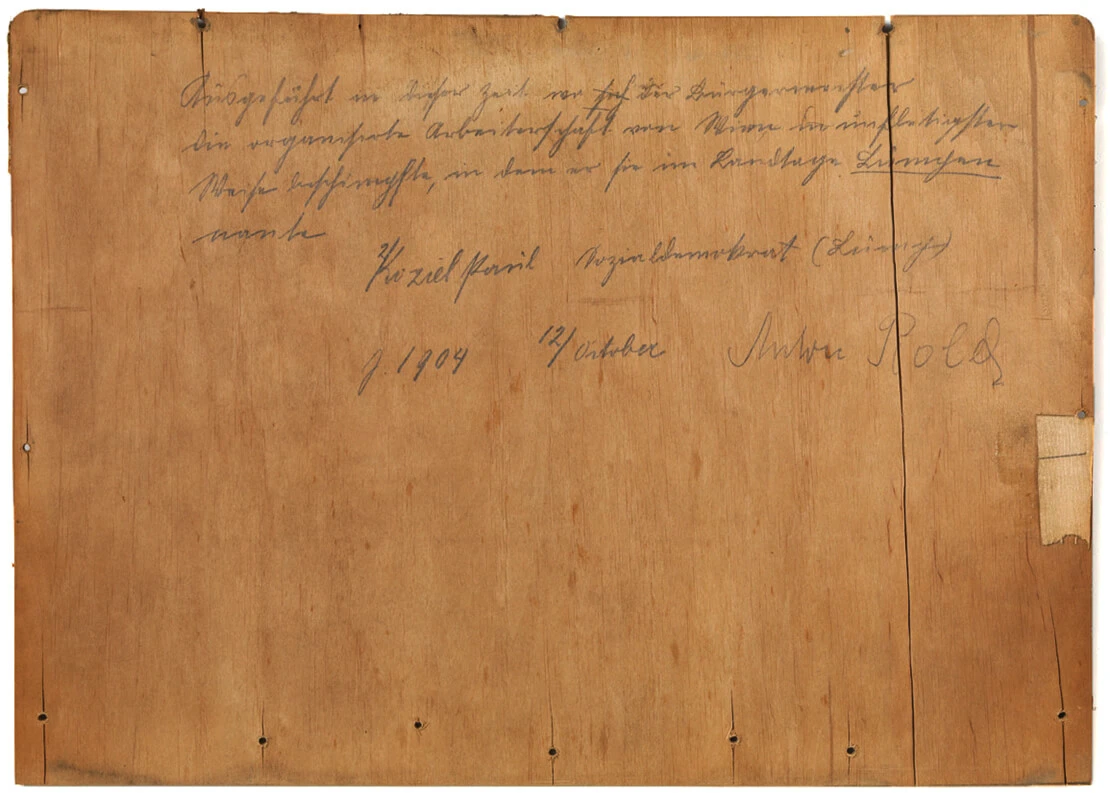 Ausgeführt in dieser Zeit wo sich der Bürgermeister
die organisirte Arbeiterschaft von Wien in unfletigster
Weise beschimpfte, in dem er sie im Landtage Lümpen
nante
Koziel Paul Sozialdemokrat (Lümp)
J. 1904 12/ October Anton